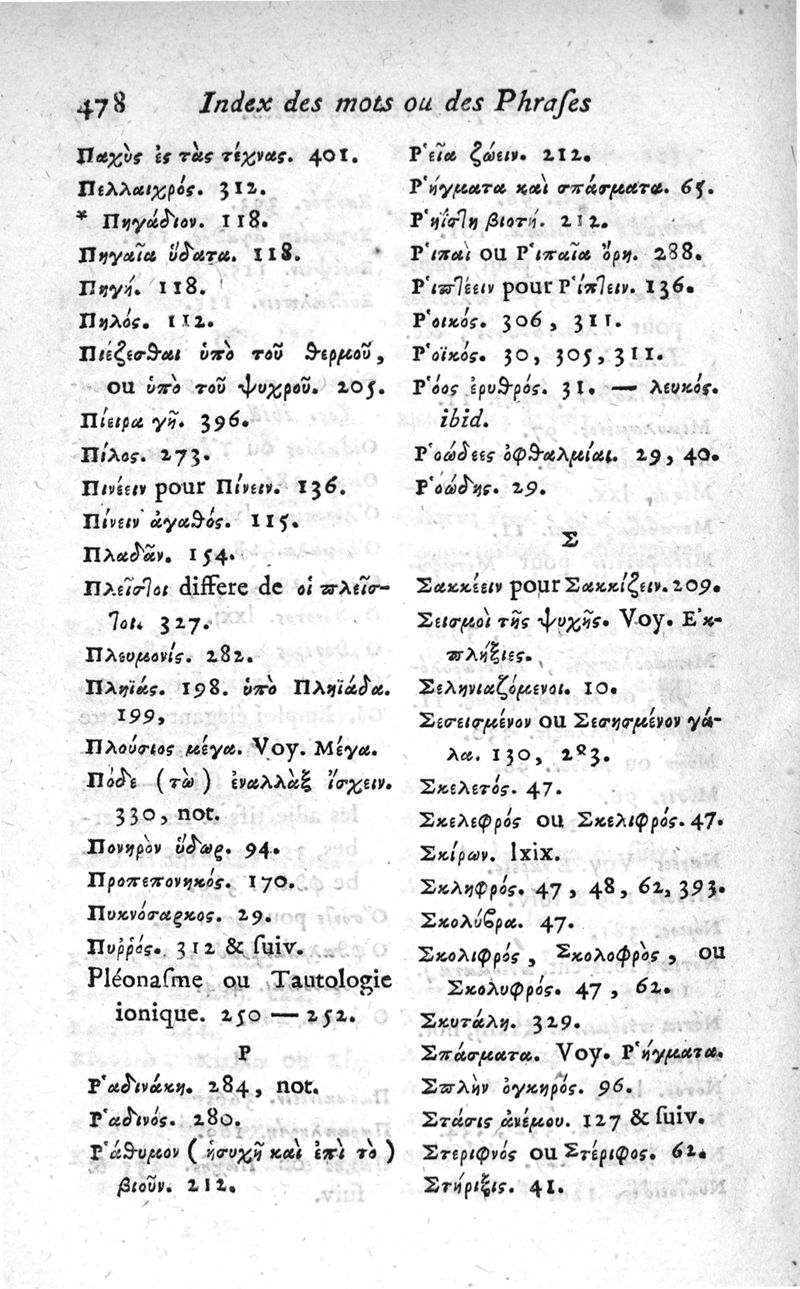 478 Index des mots ou des Phraſes
Παχὺς ἐς τὰς τέχνας. 401.
Πελλαιχρός. 312.
* Πηγάδιον. 118.
Πηγαῖα ὕδατα. 118.
Πηγή. 118.
Πηλός. 112.
Πιέζεσθαι ὑπὸ τοῦ θερμοῦ,
ou ὑπὸ τοῦ ψυχροῦ. 205.
Πίειρα γῆ. 396.
Πίλος. 273.
Πινέειν pour Πίνειν. 136.
Πίνειν ἀγαθός. 115.
Πλαδᾶν. 154.
Πλεῖστοι differe de οἱ πλεῖσ-
τοι. 327.
Πλευμονίς. 282.
Πληϊάς. 198. ὑπὸ Πληϊάδα.
199,
Πλούσιος μέγα. Voy. Μέγα.
Πόδε (τὼ) ἐναλλὰξ ἴσχειν.
330, not.
Πονηρὸν ὕδωρ. 94.
Προπεπονηκός. 170.
Πυκνόσαρκος. 29.
Πυῤῥός. 312 & ſuiv.
Pléonaſme ou Tautologie
ionique. 250 — 252.
Ρ
Ρ῾αδινάκη. 284, not.
Ρ῾αδινός. 280.
Ρ῾άθυμον (ἡσυχῆ καὶ ἐπὶ τὸ)
βιοῦν. 212.
Ρ῾εῖα ζώειν. 212.
Ρ῾ήγματα καὶ σπάσματα. 65.
Ρ῾ηΐστη βιοτή. 212.
Ρ῾ιπαὶ ou Ρ῾ιπαῖα ὄρη. 288.
Ρ῾ιπτέειν pour Ρ῾ίπτειν. 136.
Ρ῾οικός. 306, 311.
Ρ῾οϊκός. 30, 305, 311.
Ρ῾όος ἐρυθρός. 31. — λευκός.
ibid.
Ρ῾οώδεες ὀφθαλμίαι. 29, 40.
Ρ῾οώδης. 29.
Σ
Σακκέειν pour Σακκίζειν. 209.
Σεισμοὶ τῆς ψυχῆς. Voy. Ε᾿κ-
πλήξιες.
Σεληνιαζόμενοι. 10.
Σεσεισμένον ou Σεσησμένον γά-
λα. 130, 283.
Σκελετός. 47.
Σκελεφρός ou Σκελιφρός. 47.
Σκίρων. lxix.
Σκληφρός. 47, 48, 62, 393.
Σκολύβρα. 47.
Σκολιφρός, Σκολοφρὸς, ou
Σκολυφρός. 47, 62.
Σκυτάλη. 329.
Σπάσματα. Voy. Ρ῾ήγματα.
Σπλὴν ὀγκηρός. 96.
Στάσις ἀνέμου. 127 & ſuiv.
Στεριφνός ou Στέριφος. 62.
Στήριξις. 41.